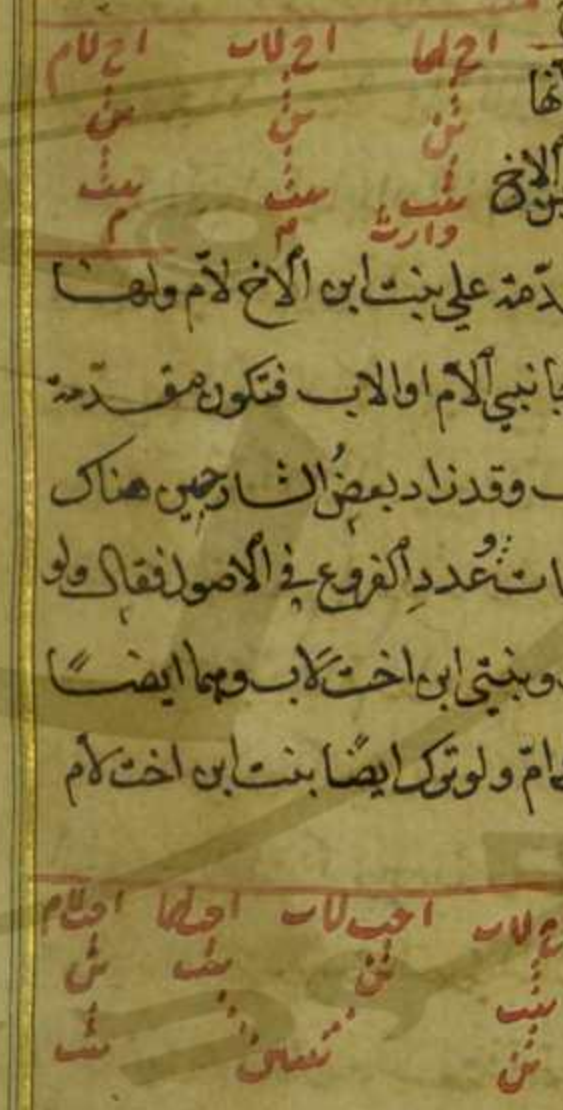 اخ لهما اخ لاب اخ لام
انها
ابن ابن ابن
الاخ
بنت بنت بنت
وارث م م
على بنت ابن الاخ لامّ ولهنا
جانبي الام او الاب فتكون مقدمة
وقد زاد بعض الشارحين هناك
عدد الفروع في الاصول فقال ولو
وبنتي ابن اخت لاب وهما ايضًا
امّ ولو ترك ايضًا بنت ابن اخت لام
لاب اخت لاب اخت لهما اخت لام
بنت ابن بنت ابن
ابن بنتين بنت